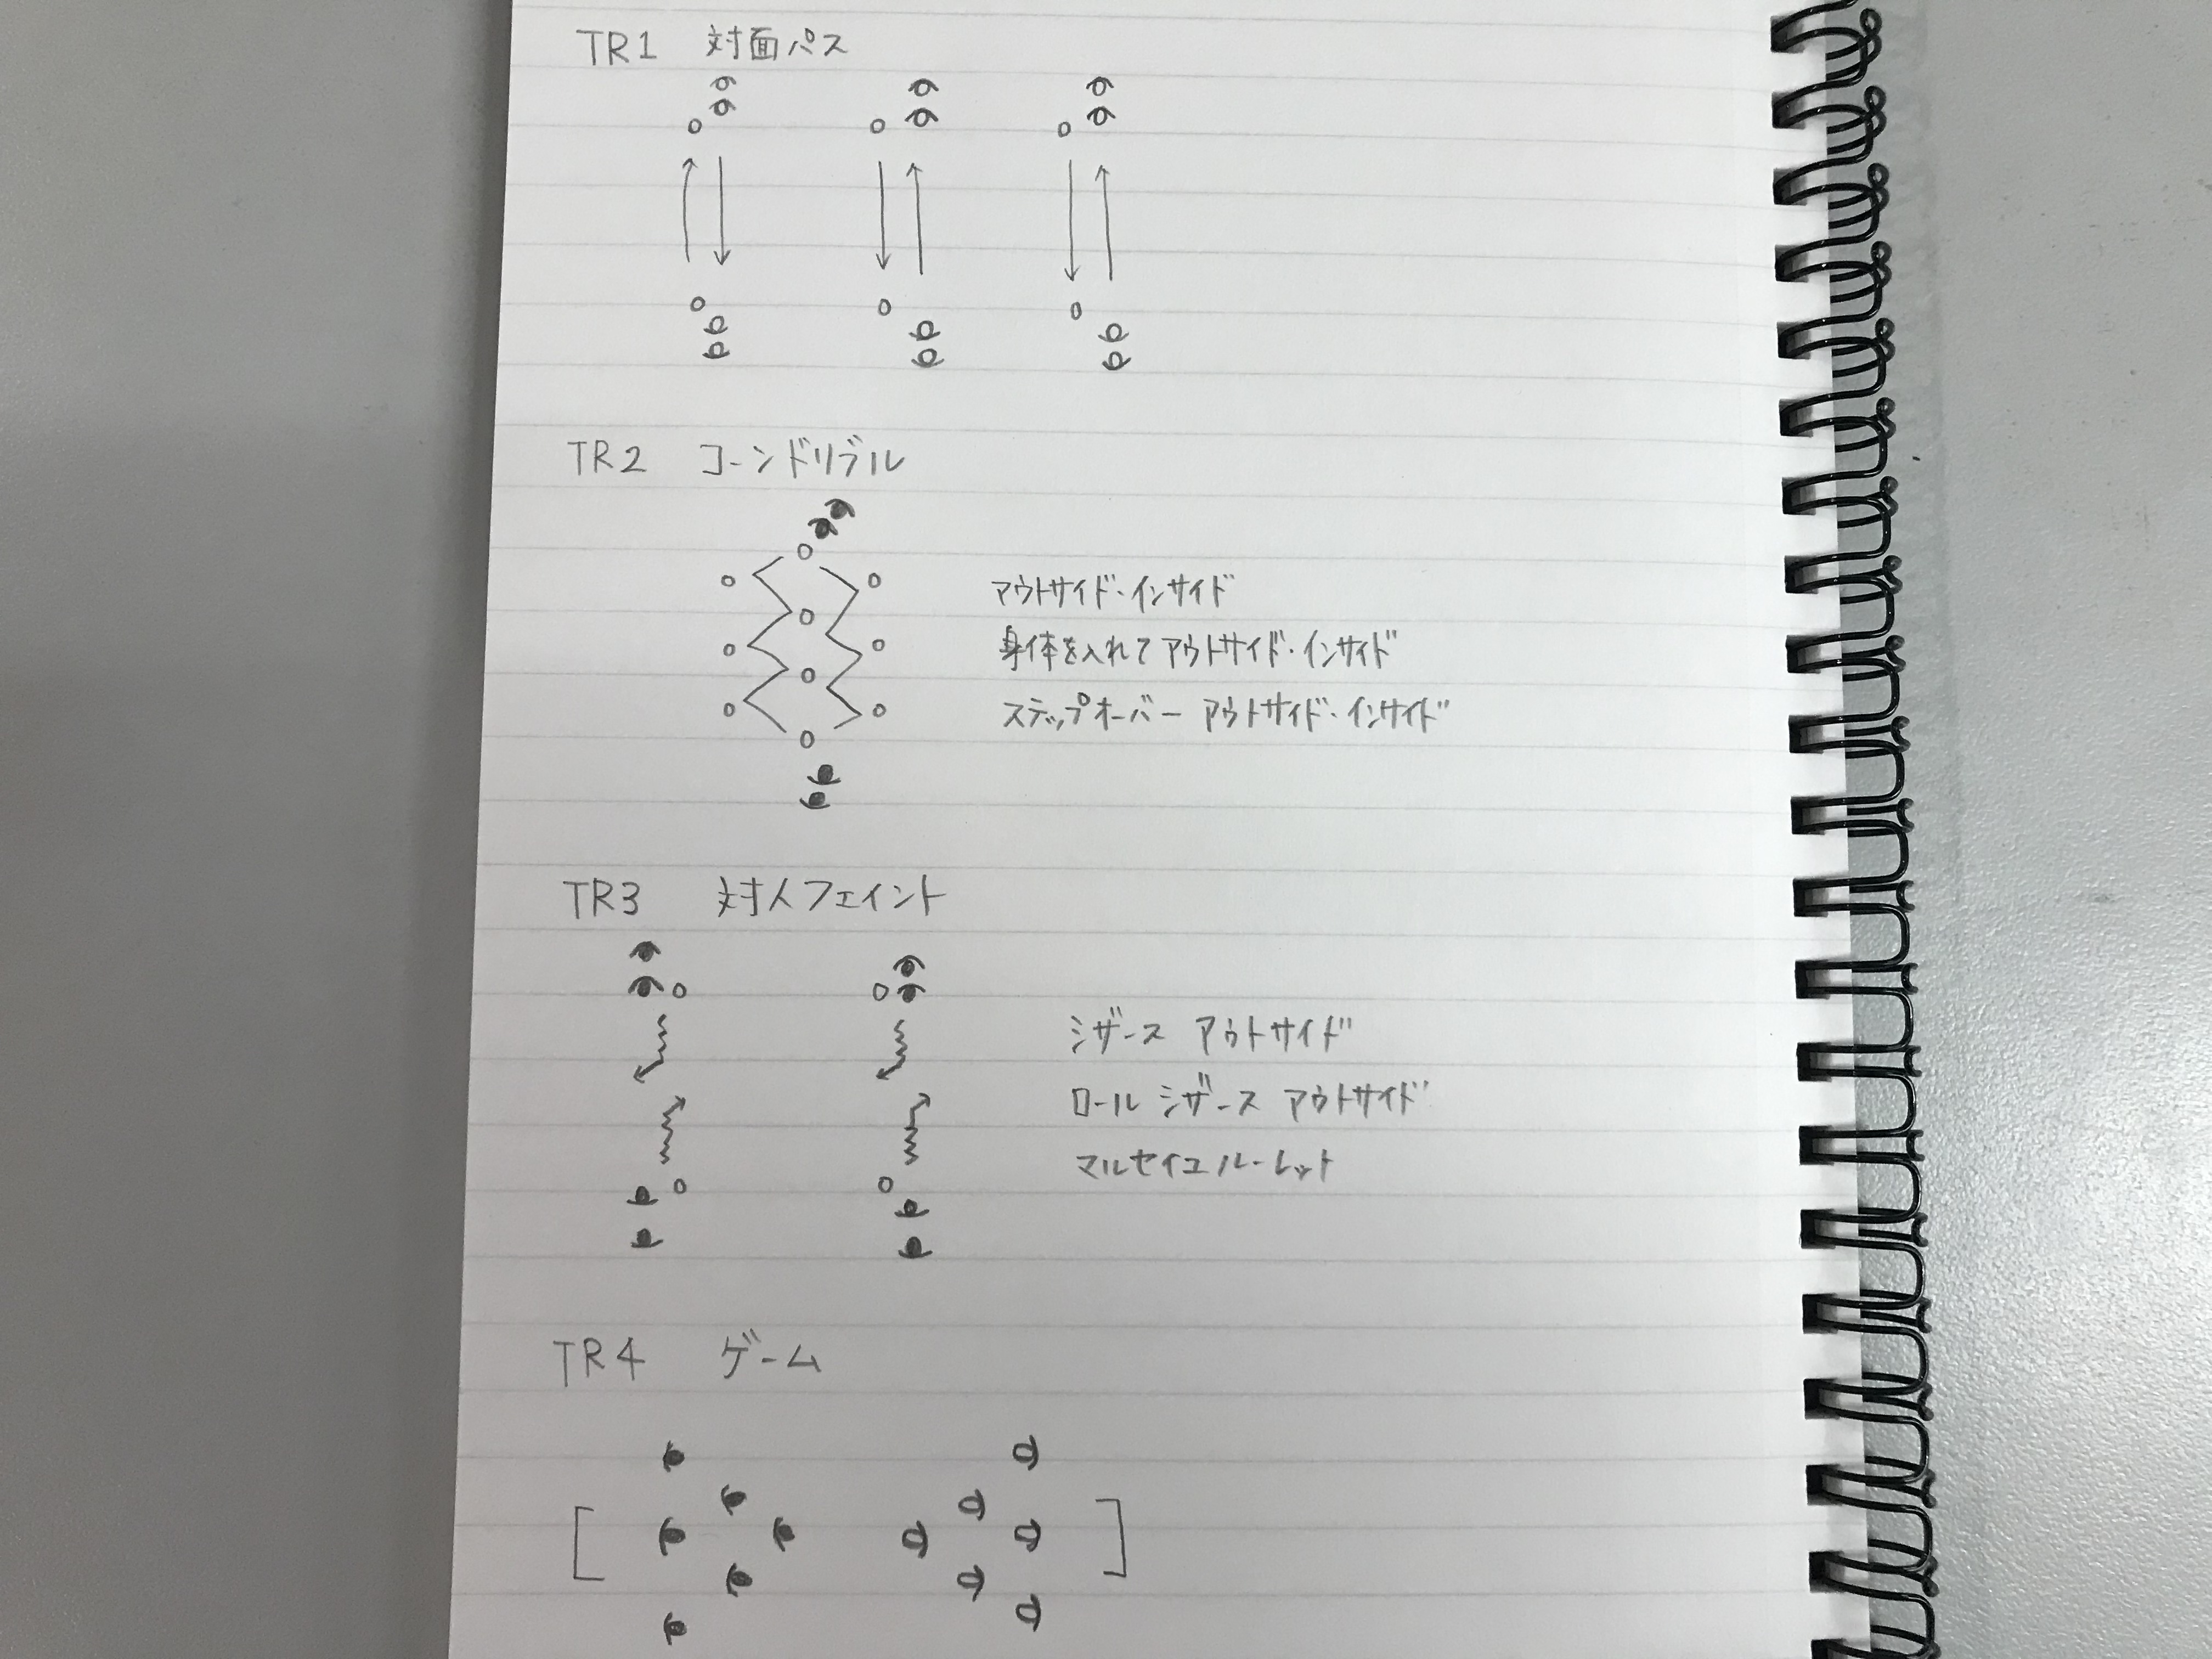 TR1 対面パス
TR2 コーンドリブル
アウトサイド・インサイド
身体を入れてアウトサイド・インサイド
ステップオーバー アウトサイド・インサイド
TR3 対人フェイント
シザース アウトサイド
ロール シザース アウトサイド
マルセイユルーレット
TR4 ゲーム